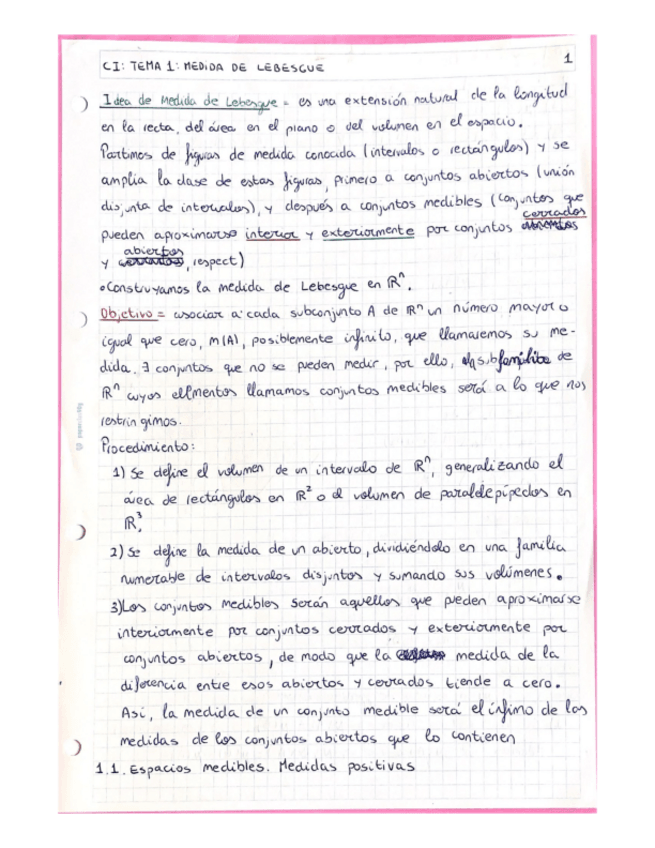 CI: TEMA 1: MEDIDA DE LEBESGUE
1
Idea de Medida de Lebesgue = es una extensión natural de la longitud
en la recta, del área en el plano o del volumen en el espacio.
Partimos de figuras de medida conocida (intervalos o rectángulos) y se
amplia la clase de estas figuras, primero a conjuntos abiertos (unión
disjunta de intervalos), y después a conjuntos medibles (conjuntos que
pueden aproximarse interior y exteriormente por conjuntos cerrados
y abiertos, respect)
•Construyamos la medida de Lebesgue en ℝⁿ.
Objetivo = asociar a cada subconjunto A de ℝⁿ un número mayor o
igual que cero, m(A), posiblemente infinito, que llamaremos su me-
dida. ∃ conjuntos que no se pueden medir, por ello, subfamilia de
ℝⁿ cuyos ellmentos llamamos conjuntos medibles será a lo que nos
restringimos.
Procedimiento:
1) Se define el volumen de un intervalo de ℝⁿ, generalizando el
área de rectángulos en ℝ² o el volumen de paralelepípedos en
ℝ³.
2) Se define la medida de un abierto, dividiéndolo en una familia
numerable de intervalos disjuntos y sumando sus volúmenes.
3) Los conjuntos medibles serán aquellos que pueden aproximarse
interiormente por conjuntos cerrados y exteriormente por
conjuntos abiertos, de modo que la medida de la
diferencia entre esos abiertos y cerrados tiende a cero.
Asi, la medida de un conjunto medible será el ínfimo de las
medidas de los conjuntos abiertos que lo contienen
1.1. Espacios medibles. Medidas positivas